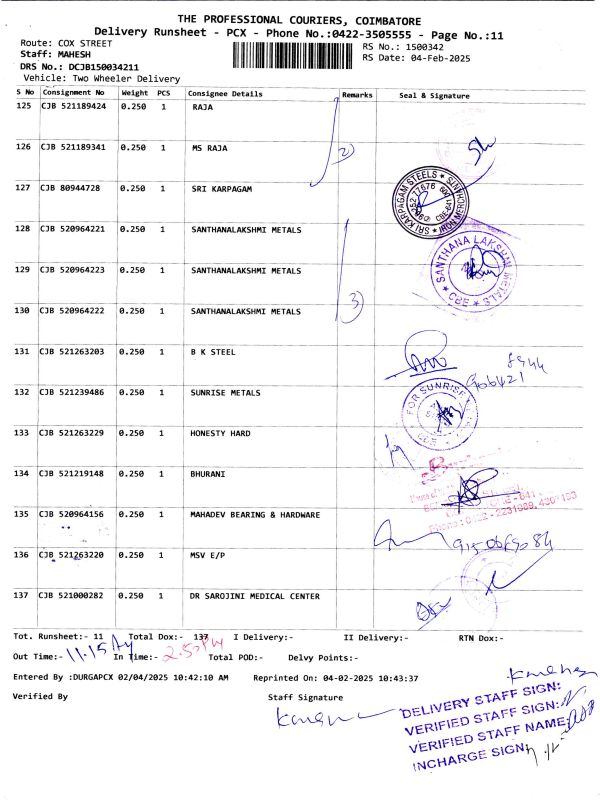 THE PROFESSIONAL COURIERS, COIMBATORE
Delivery Runsheet - PCX - Phone No.:0422-3505555 - Page No.:11
Route: COX STREET
RS No.: 1500342
Staff: MAHESH
RS Date: 04-Feb-2025
DRS No.: DCJB150034211
Vehicle: Two Wheeler Delivery
S No Consignment No Weight PCS Consignee Details Remarks Seal & Signature
125 CJB 521189424 0.250 1 RAJA
126 CJB 521189341 0.250 1 MS RAJA 2)
127 CJB 80944728 0.250 1 SRI KARPAGAM
SRI KARPAGAM STEELS
128 CJB 520964221 0.250 1 SANTHANALAKSHMI METALS
129 CJB 520964223 0.250 1 SANTHANALAKSHMI METALS
SANTHANA LAKSHMI METALS
CBE
130 CJB 520964222 0.250 1 SANTHANALAKSHMI METALS 3)
131 CJB 521263203 0.250 1 B K STEEL
8944
906421
132 CJB 521239486 0.250 1 SUNRISE METALS
FOR SUNRISE
133 CJB 521263229 0.250 1 HONESTY HARD
134 CJB 521219148 0.250 1 BHURANI
135 CJB 520964156 0.250 1 MAHADEV BEARING & HARDWARE
136 CJB 521263220 0.250 1 MSV E/P
137 CJB 521000282 0.250 1 DR SAROJINI MEDICAL CENTER
Tot. Runsheet:- 11 Total Dox:- 137 I Delivery:- II Delivery:- RTN Dox:-
Out Time:- 11.15 In Time:- 2.50 PM Total POD:- Delvy Points:-
Entered By :DURGAPCX 02/04/2025 10:42:10 AM Reprinted On: 04-02-2025 10:43:37
Verified By Staff Signature
DELIVERY STAFF SIGN:
VERIFIED STAFF SIGN:
VERIFIED STAFF NAME:
INCHARGE SIGN: